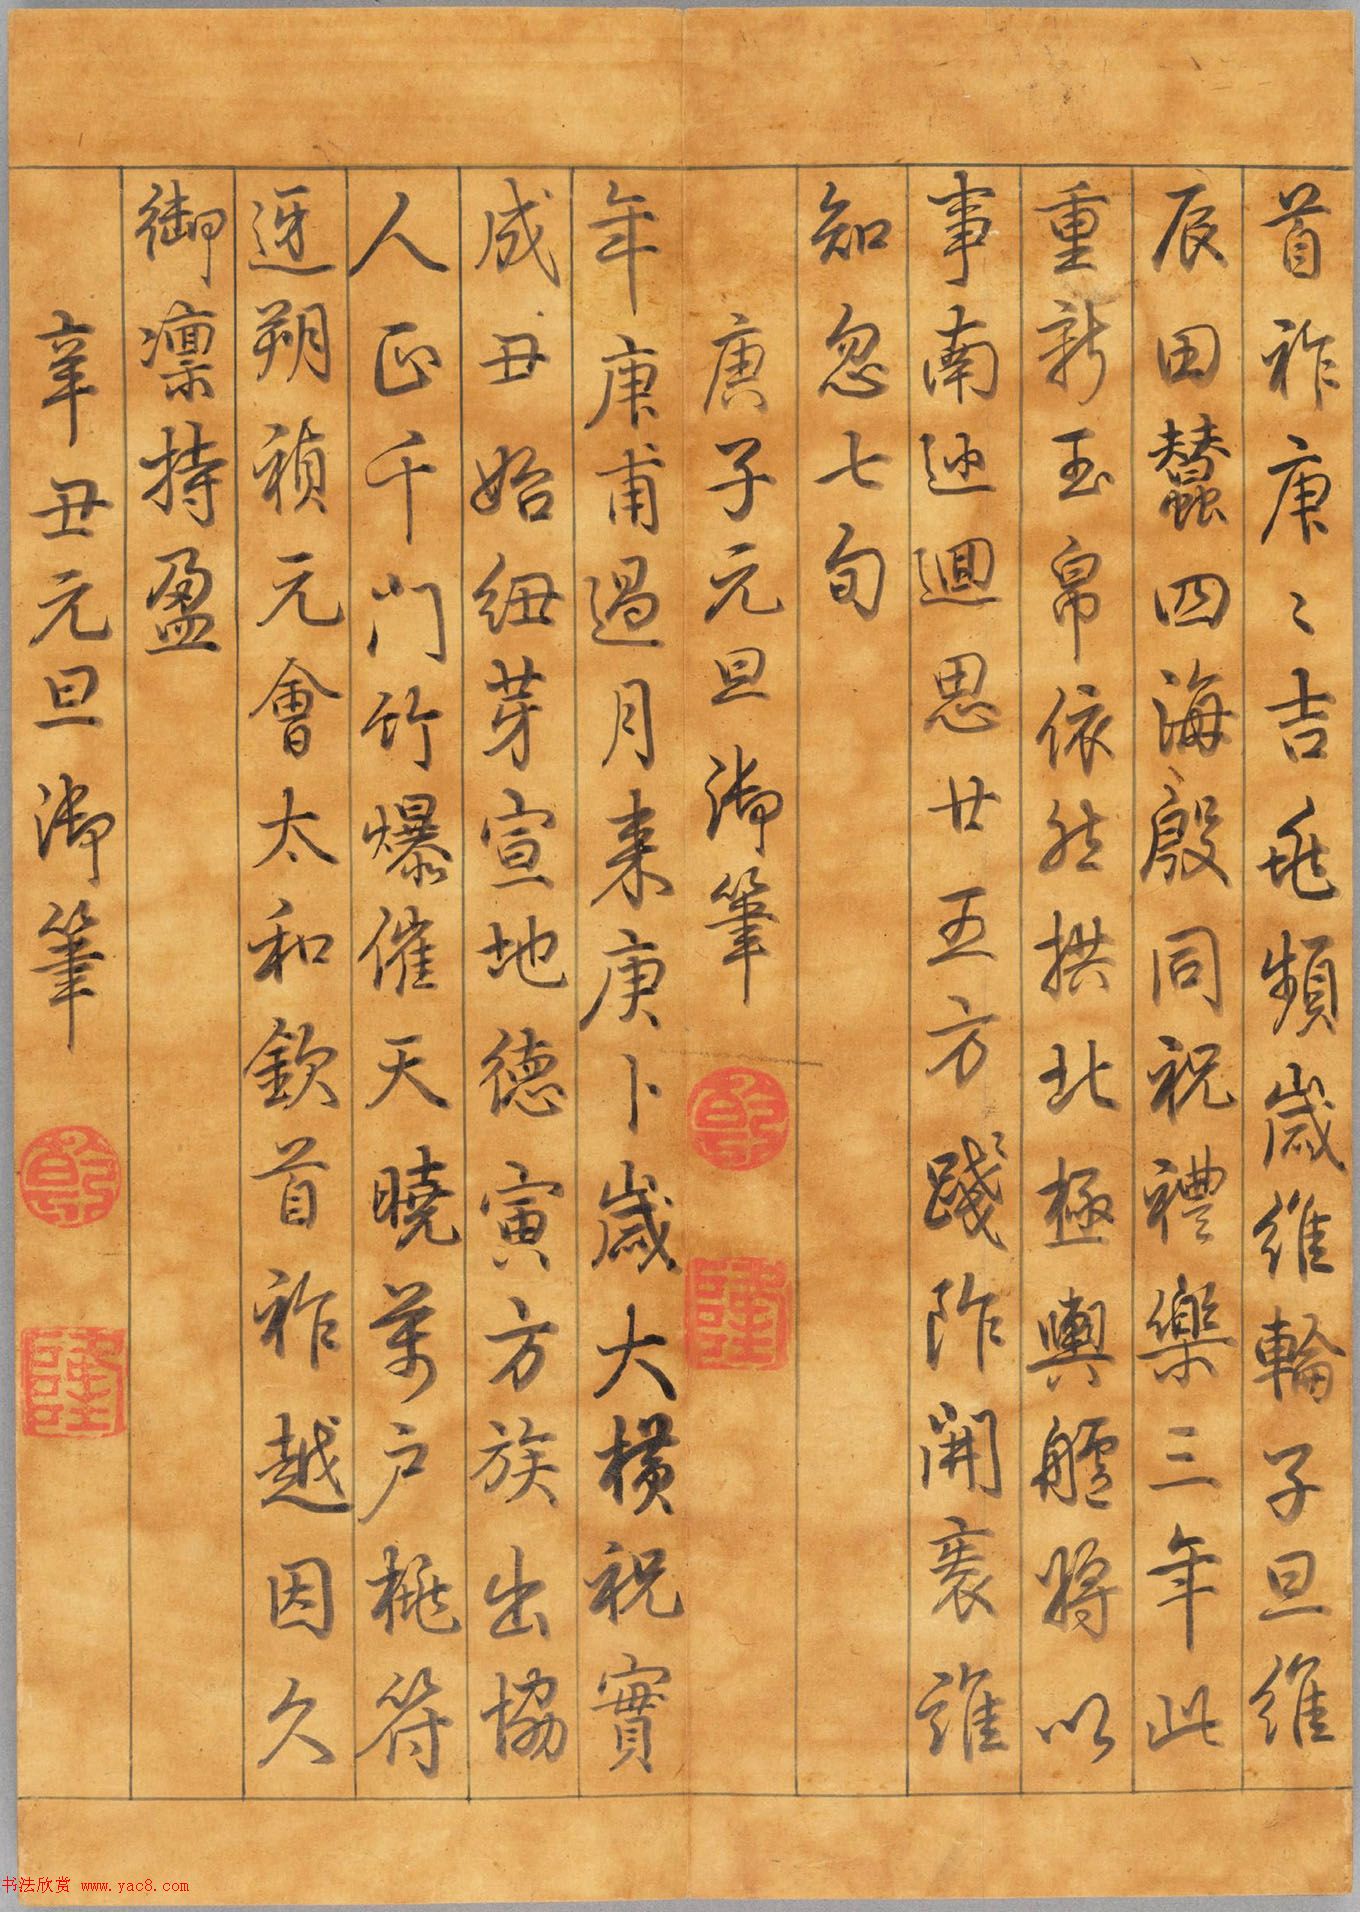 首祚庚〻吉兆頻歲維輪子旦維
辰田蠶四海殷同祝禮樂三年此
重新玉帛依然拱北極輿艫將以
事南廵迴思廿五方踐阼開袠誰
知忽七旬
庚子元旦御筆
乾
隆
年庚甫過月来庚卜歲大橫祝實
成丑始紐芽宣地德寅方族出協
人正千門竹爆催天曉萬戶桃符
迓朔禎元會太和欽首祚越因久
御凜持盈
辛丑元旦御筆
乾
隆
书法欣赏 www.yac8.com